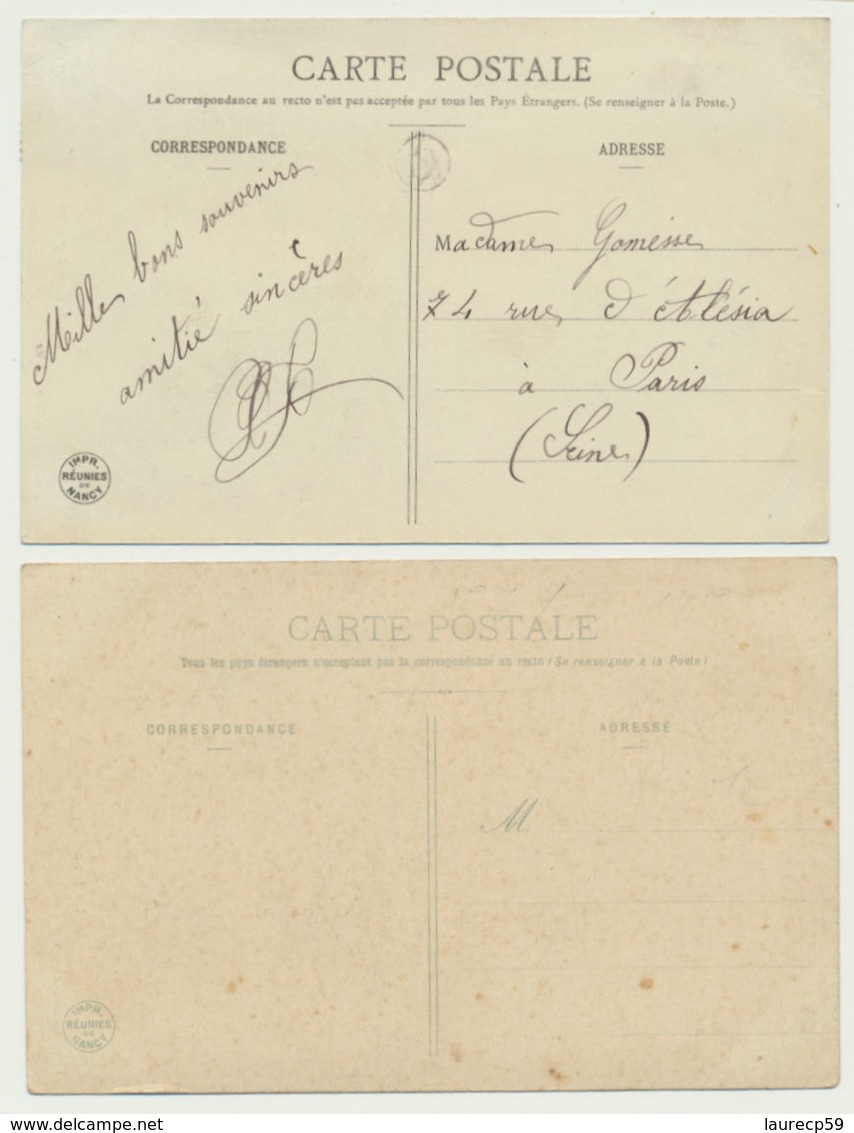 CARTE POSTALE
La Correspondance au recto n'est pas acceptée par tous les Pays Étrangers. (Se renseigner à la Poste.)
CORRESPONDANCE
Mille bons souvenirs
amitié sincères
IMPR.
RÉUNIES
DE
NANCY
ADRESSE
Madame Gomesse
74 rue d'Alésia
à Paris
(Seine)
CARTE POSTALE
Tous les pays étrangers n'acceptent pas la correspondance au recto (Se renseigner à la Poste)
CORRESPONDANCE
ADRESSE
M
IMPR.
RÉUNIES
DE
NANCY
laurecp59